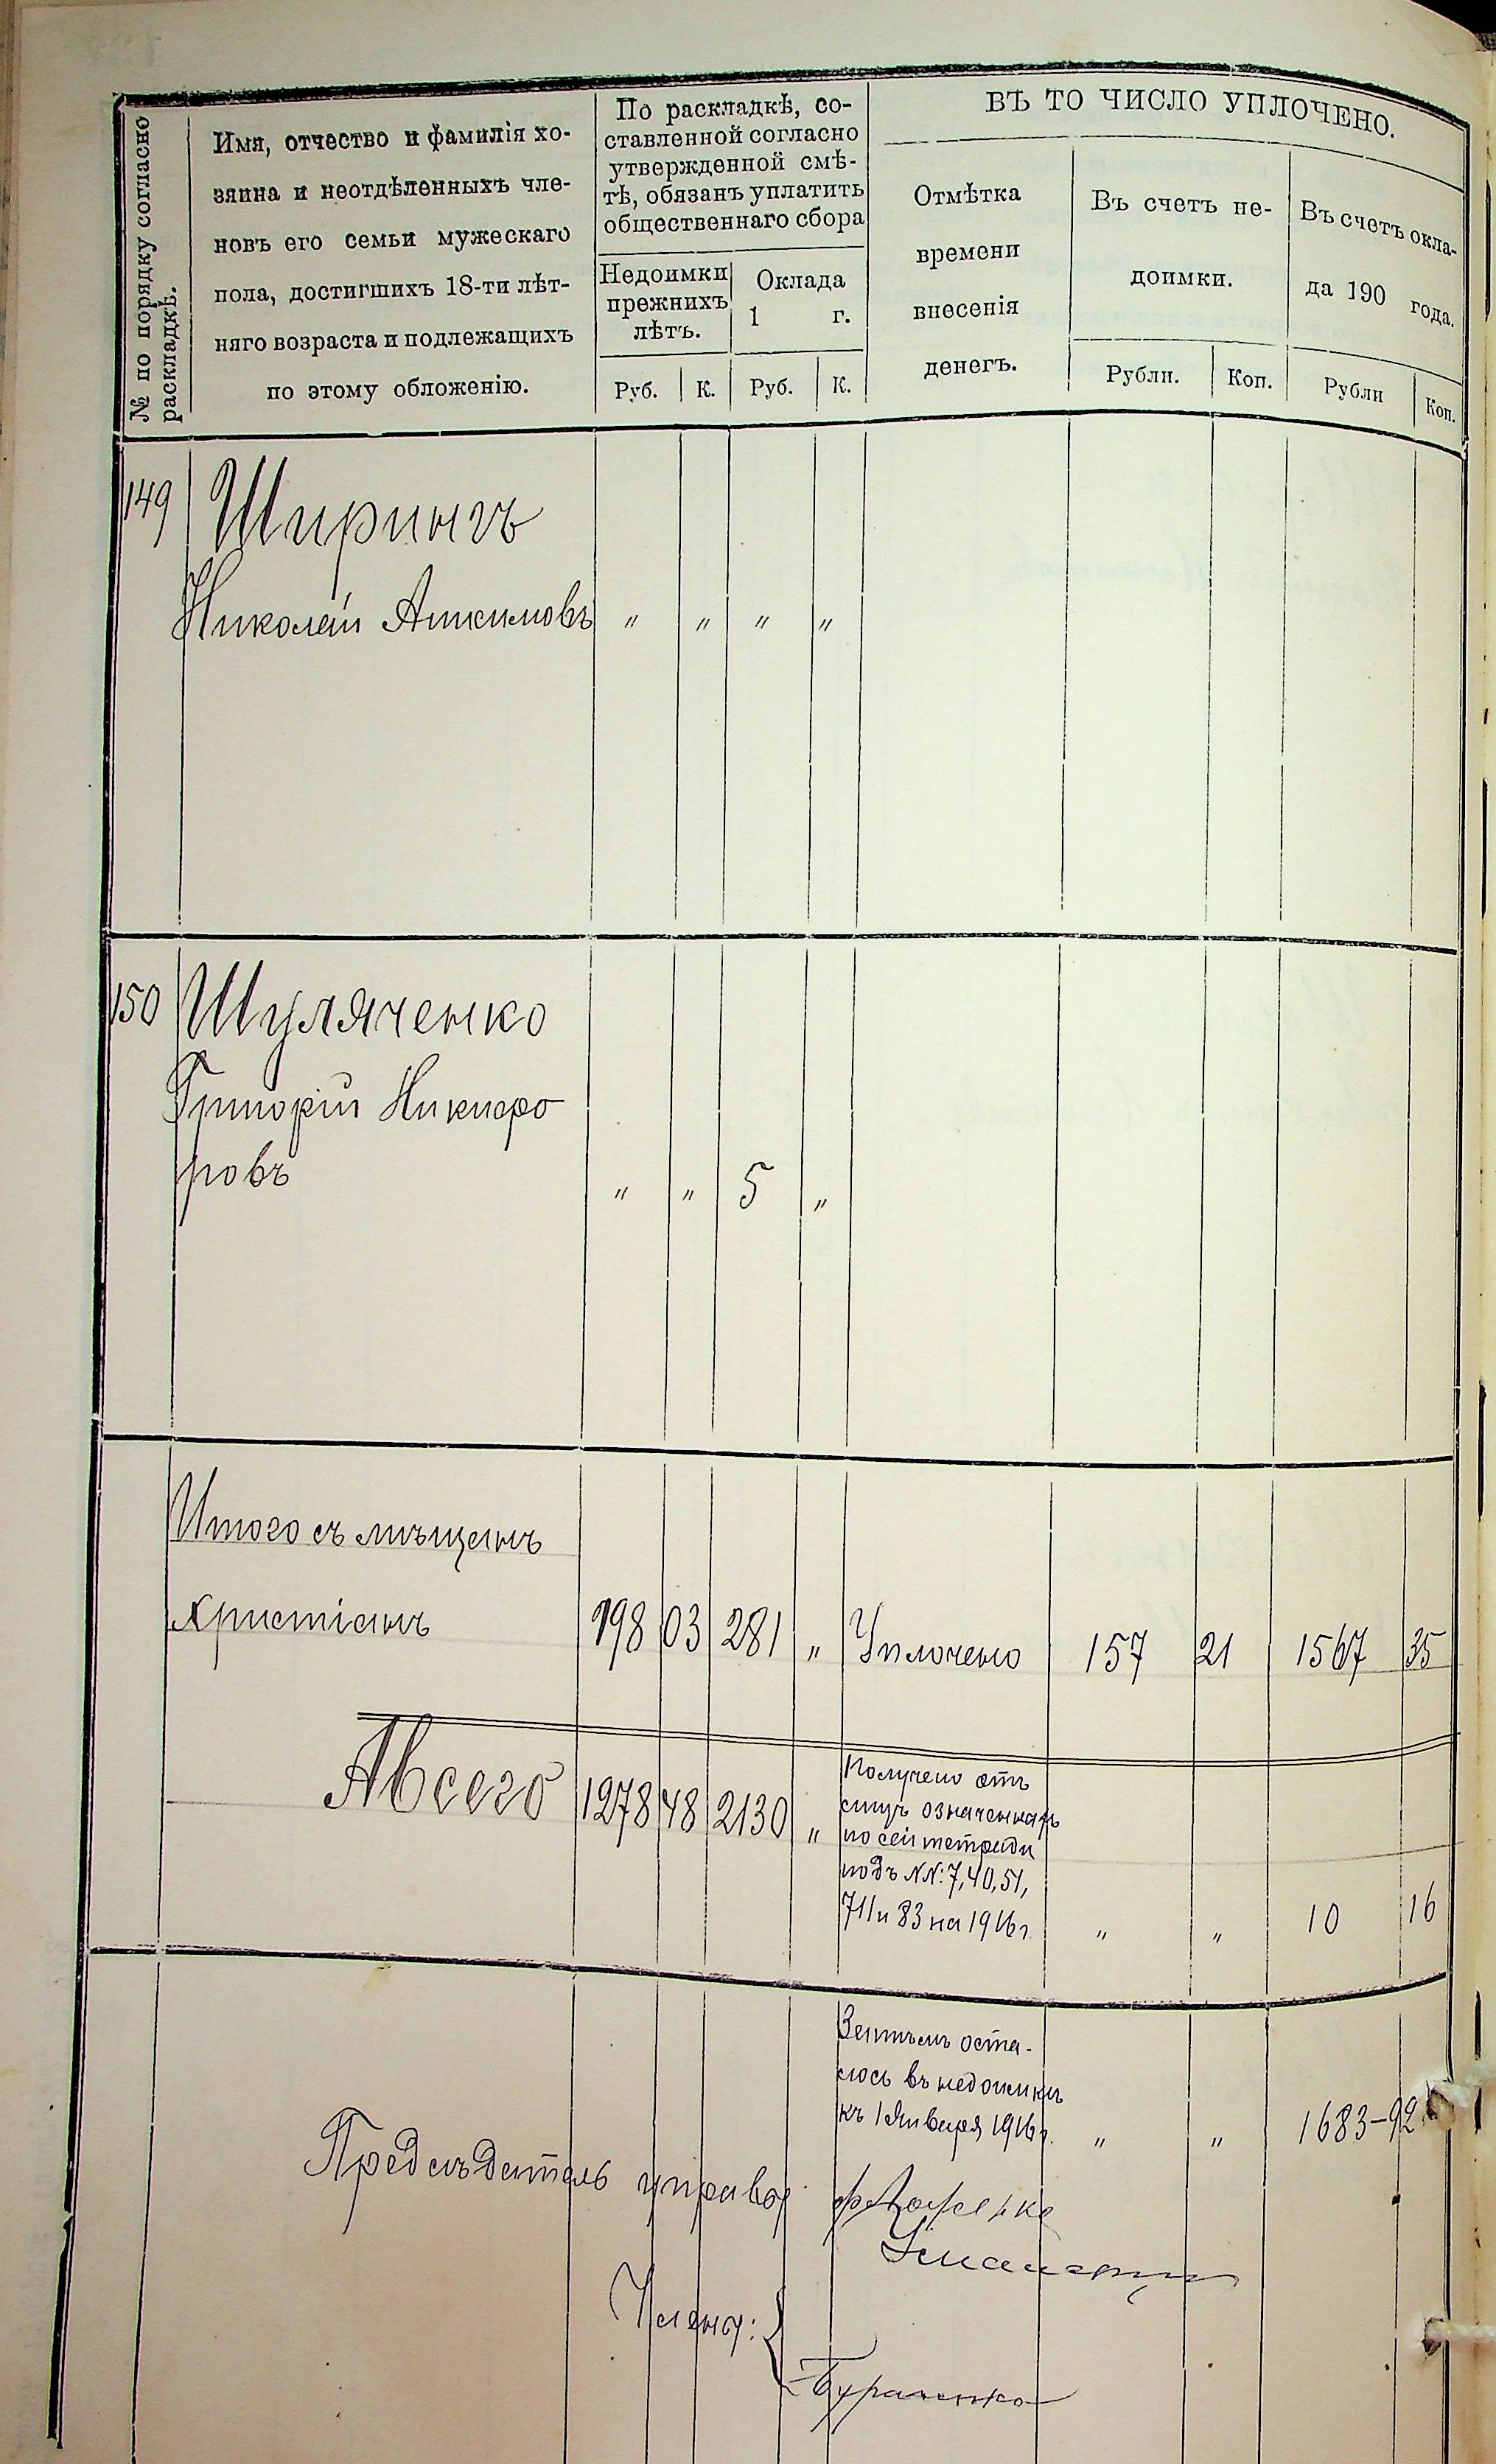 № по порядку согласно
раскладкѣ.
Имя, отчество и фамилія хо-
зяина и неотдѣленныхъ чле-
новъ его семьи мужескаго
пола, достигшихъ 18-ти лѣт-
няго возраста и подлежащихъ
по этому обложенію.
По раскладкѣ, со-
ставленной согласно
утвержденной смѣ-
тѣ, обязанъ уплатить
общественнаго сбора
Недоимки
прежнихъ
лѣтъ.
Оклада
1 г.
Руб. К. Руб. К.
ВЪ ТО ЧИСЛО УПЛОЧЕНО.
Отмѣтка
времени
внесенія
денегъ.
Въ счетъ не-
доимки.
Рубли. Коп.
Въ счетъ окла-
да 190 года.
Рубли Коп.
149 Ширингъ
Николай " " " "
150 Шуляченко
Григорій Никифо
ровъ " " 5 "
Итого съ мѣщанъ
христіанъ 198 03 281 " Уплочено 157 21 1567 35
А всего 1278 48 2130 "
Получено отъ
лицъ означенныхъ
по сей тетради
подъ №№: 7, 40, 51,
71 и 83 на 1916 г. " " 10 16
Затѣмъ оста-
лось въ недоимкѣ
къ 1 Января 1916 г. " " 1683-92
Предсѣдатель управы
Члены: